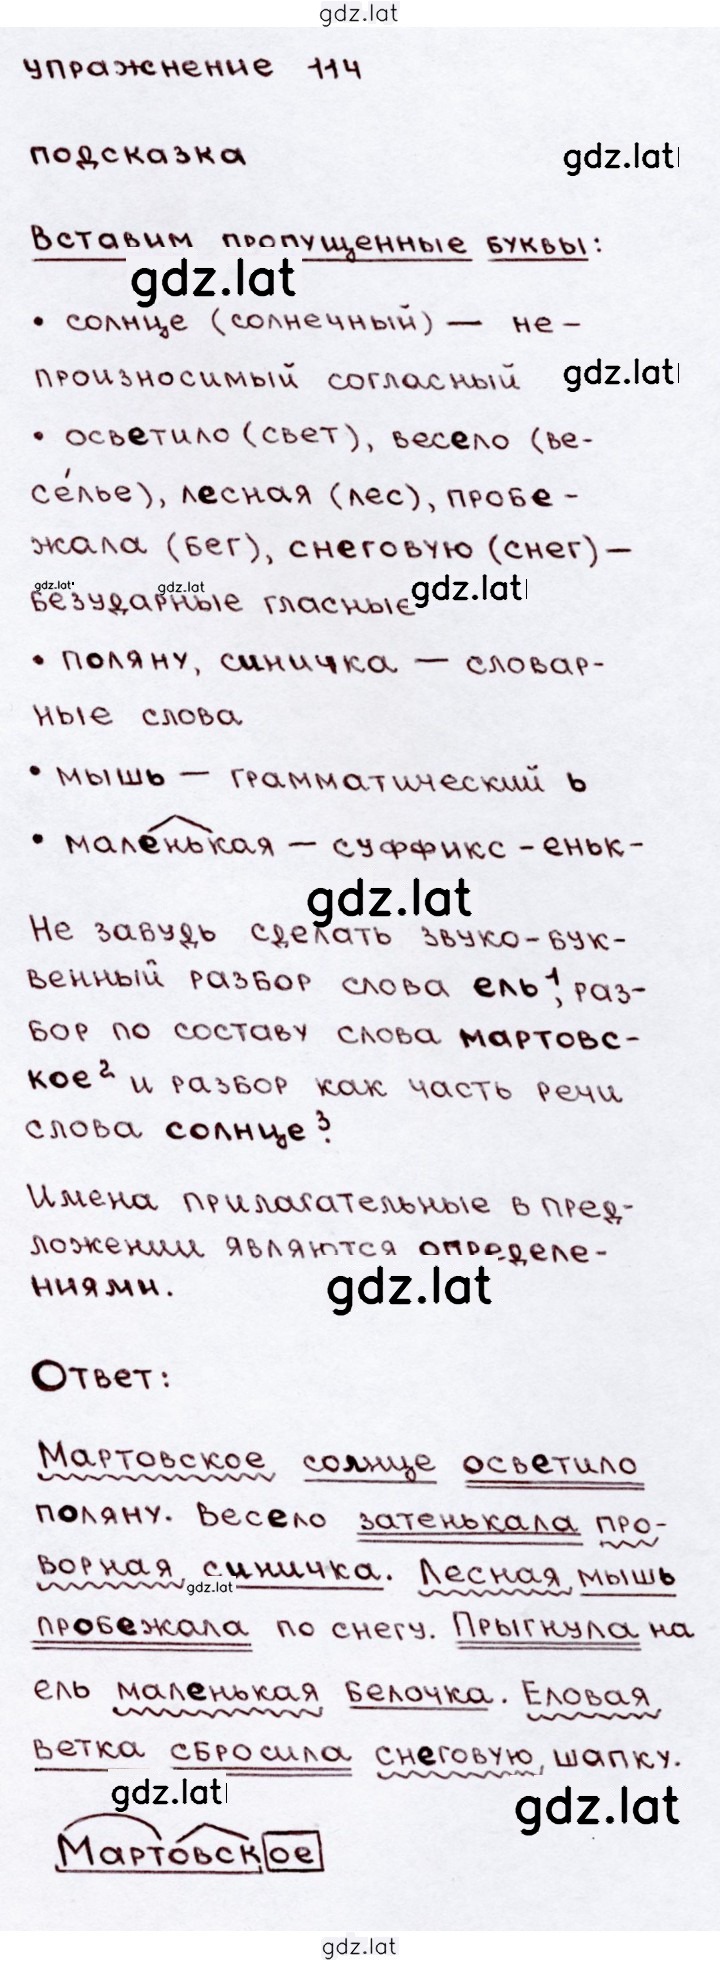 gdz.lat
упражнение 114
подсказка
gdz.lat
Вставим пропущенные буквы:
gdz.lat
• солнце (солнечный) — не-
произносимый согласный
gdz.lat
• осветило (свет), весело (ве-
се́лье), лесная (лес), пробе-
жала (бег), снеговую (снег) —
gdz.lat gdz.lat gdz.lat
безударные гласные
• поляну, синичка — словар-
ные слова
• мышь — грамматический ь
• маленькая — суффикс -еньк-
gdz.lat
Не забудь сделать звуко-бук-
венный разбор слова ель¹, раз-
бор по составу слова мартовс-
кое² и разбор как часть речи
слова солнце³.
Имена прилагательные в пред-
ложении являются определе-
ниями.
gdz.lat
Ответ:
Мартовское солнце осветило
поляну. Весело затенькала про-
ворная синичка. Лесная мышь
gdz.lat
пробежала по снегу. Прыгнула на
ель маленькая белочка. Еловая
ветка сбросила снеговую шапку.
gdz.lat gdz.lat
Мартовское
gdz.lat